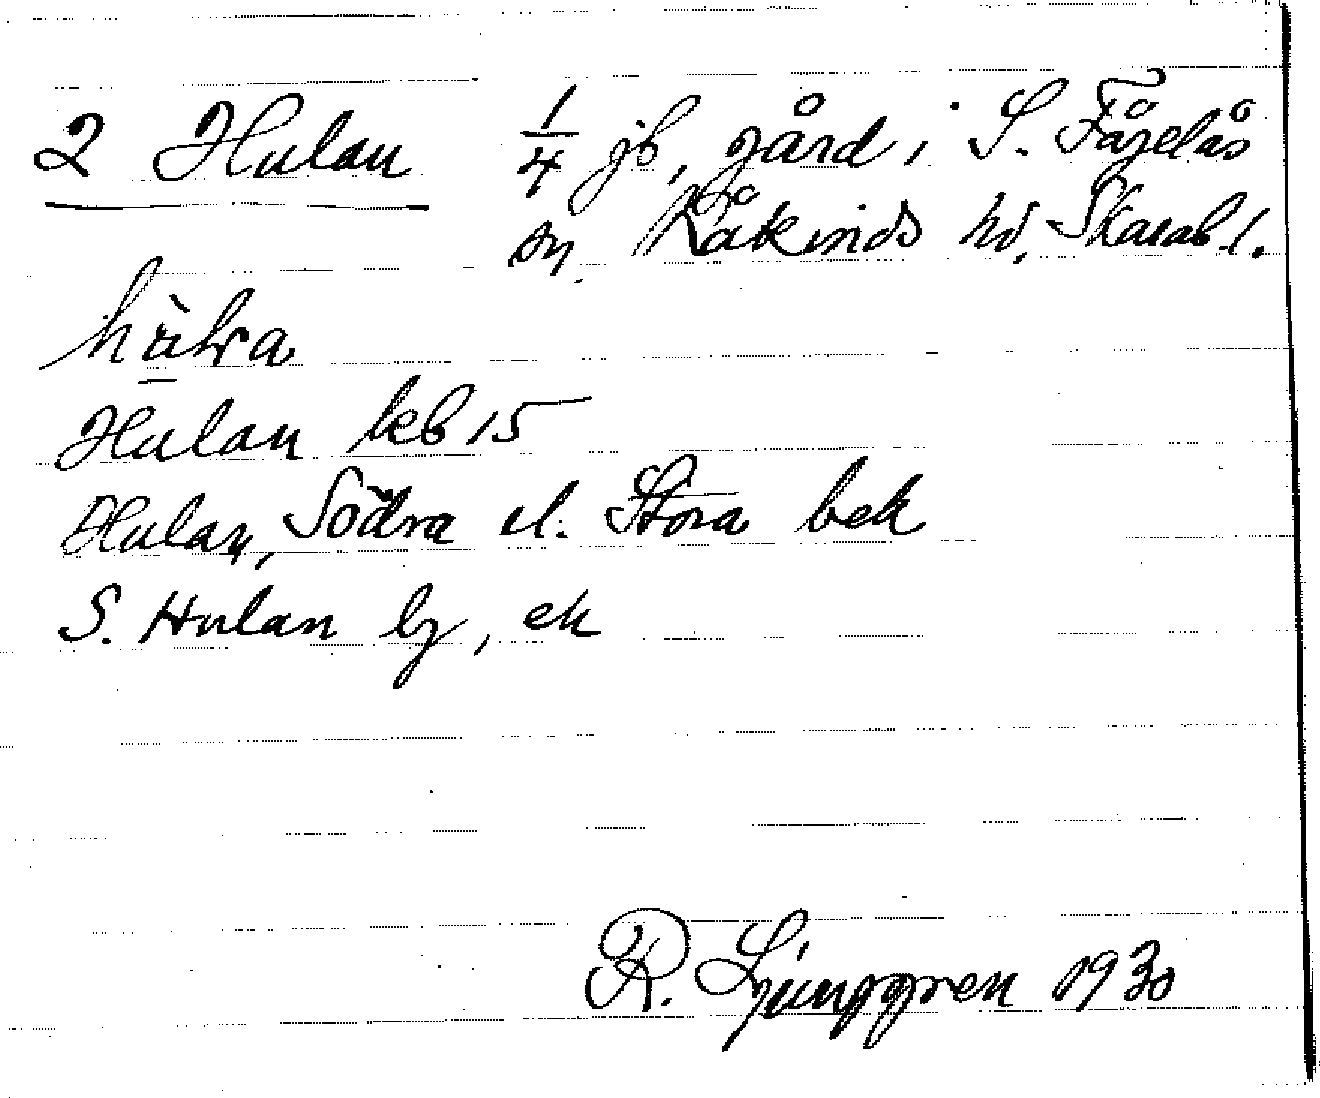 2 Hulan 1/4 jb, gård i S. Fågelås
sn. Kåkinds hd, Skarab. l.
Hulan keb 15
Hulan, Södra el. Stora bek
S. Hulan by, ek
R. Ljunggren 1930